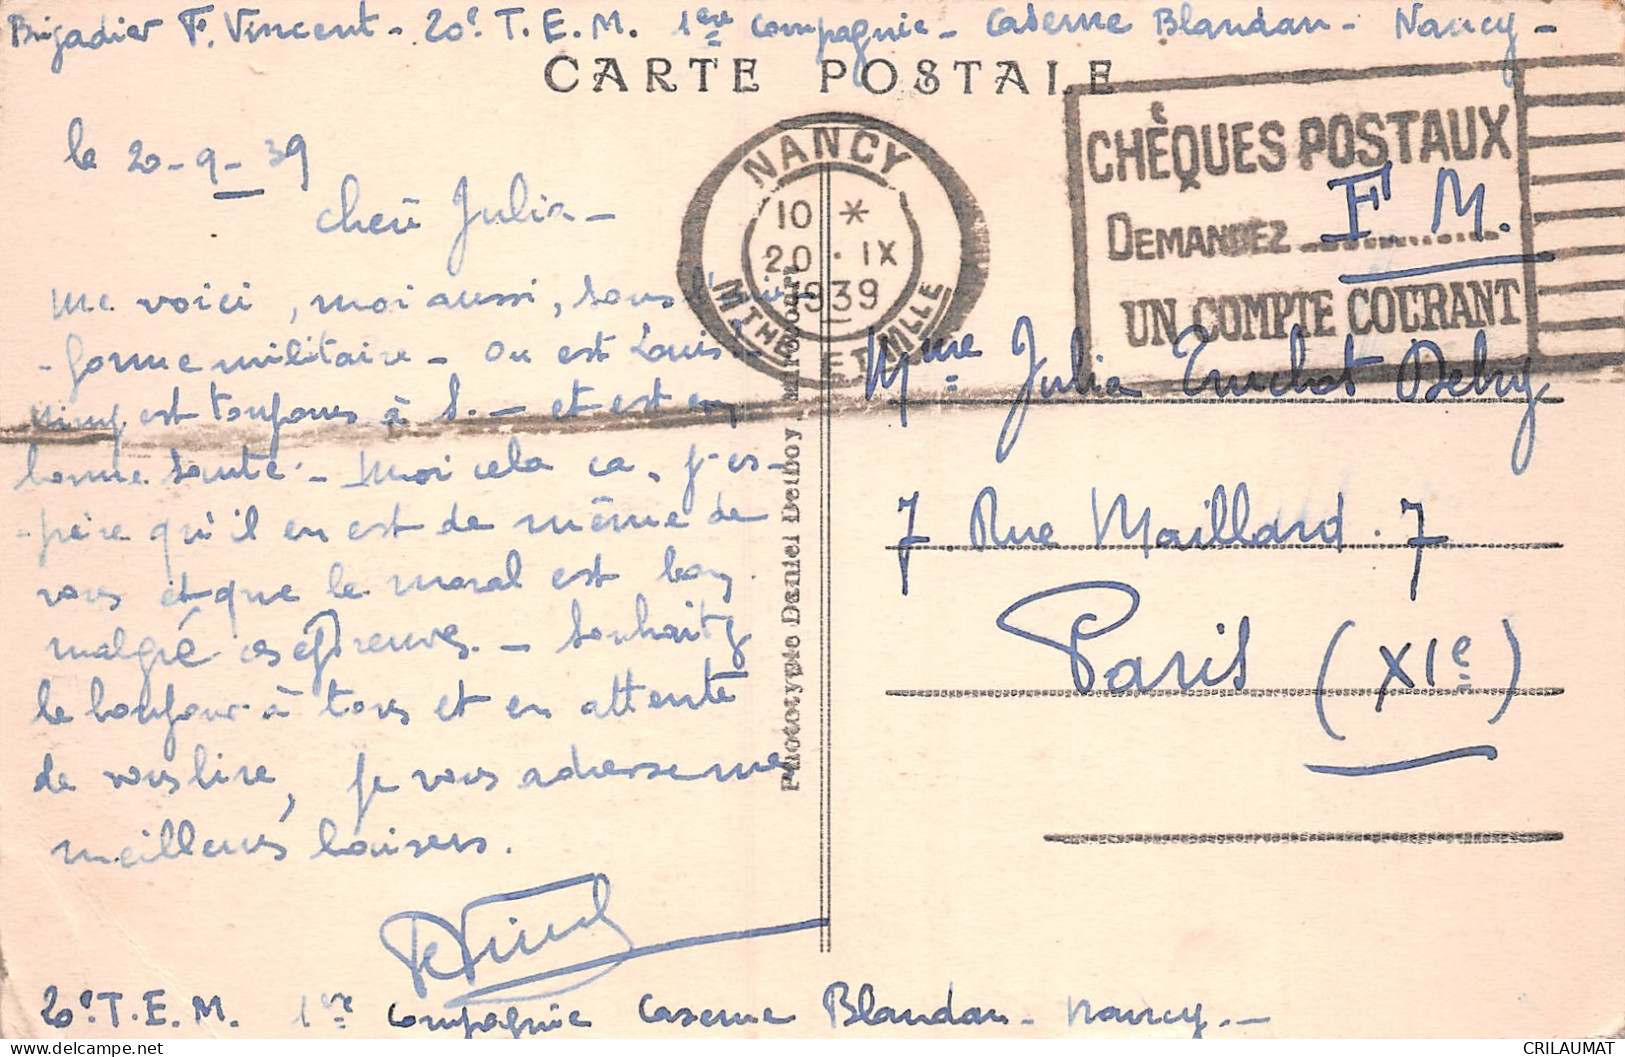 Brigadier F. Vincent - 20e T.E.M. 1ère Compagnie - Caserne Blandan - Nancy -
CARTE POSTALE
le 20-9-39
Chère Julia -
me voici, moi aussi, sous l'uni-
-forme militaire - Où est Louis?
est toujours à S. - et est en
bonne santé - Moi cela ça, j'es-
-père qu'il en est de même de
vous et que le moral est bon,
malgré ces épreuves. - Souhaitez
le bonjour à tous et en attente
de vous lire, je vous adresse mes
meilleurs baisers.
F Vincent
20e T.E.M. 1ère Compagnie Caserne Blandan - Nancy. -
Phototypie Daniel Delboy, Mirecourt
NANCY
10 *
20 · IX
1939
MTHE ET MLLE
CHÈQUES POSTAUX
DEMANDEZ
UN COMPTE COURANT
F. M.
Mme Julia Debry
7 Rue Maillard. 7
Paris (XIe)
CRILAUMAT